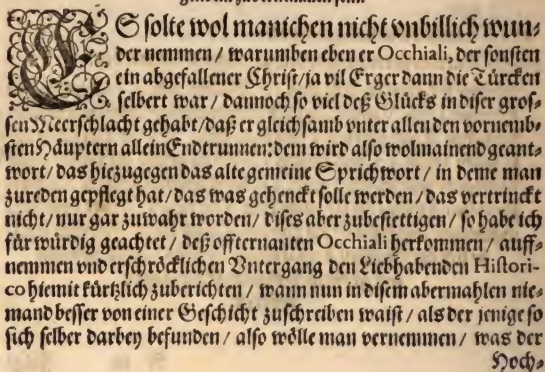 ES solte wol manichen nicht vnbillich wun⸗
der nemmen / warumben eben er Occhiali, der sonsten
ein abgefallener Christ/ja vil Erger dann die Türcken
selbert war / dannoch so viel deß Glücks in diser gros⸗
sen Meerschlacht gehabt/daß er gleichsamb vnter allen den vornemb⸗
sten Häuptern allein Endtrunnen: dem wird also wolmainend geant⸗
wort/das hiezugegen das alte gemeine Sprichwort / in deme man
zureden gepflegt hat/das was gehenckt solle werden/das vertrinckt
nicht/nur gar zuwahr worden/dises aber zubestettigen/so habe ich
für würdig geachtet / deß offternanten Occhiali herkommen / auff⸗
nemmen vnd erschröcklichen Vntergang den Liebhabenden Histori-
co hiemit kürtzlich zuberichten / wann nun in disem abermahlen nie⸗
mand besser von einer Geschicht zuschreiben waist / als der jenige so
sich selber darbey befunden / also wölle man vernemmen / was der
Hoch⸗